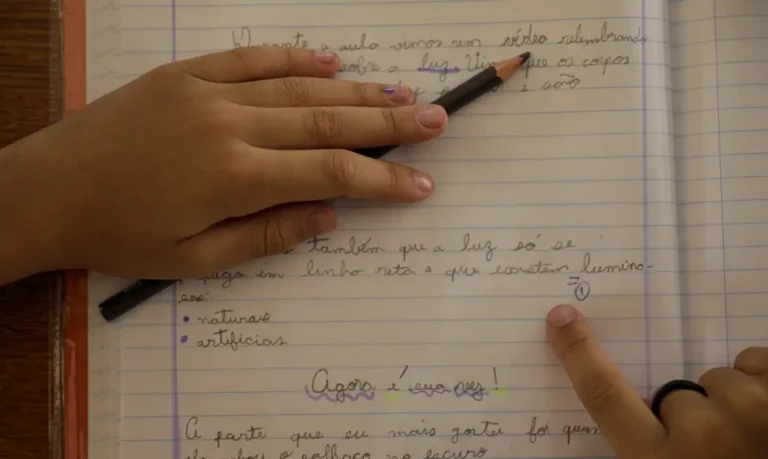 Durante a aula vimos um vídeo relembrando
sobre a luz. Vimos que os corpos
e são
também que a luz só se
em linha reta e que existem lumino-
sos:
= ①
• naturais
• artificiais
Agora é sua vez!
A parte que eu mais gostei foi quan
o palhaço no escuro